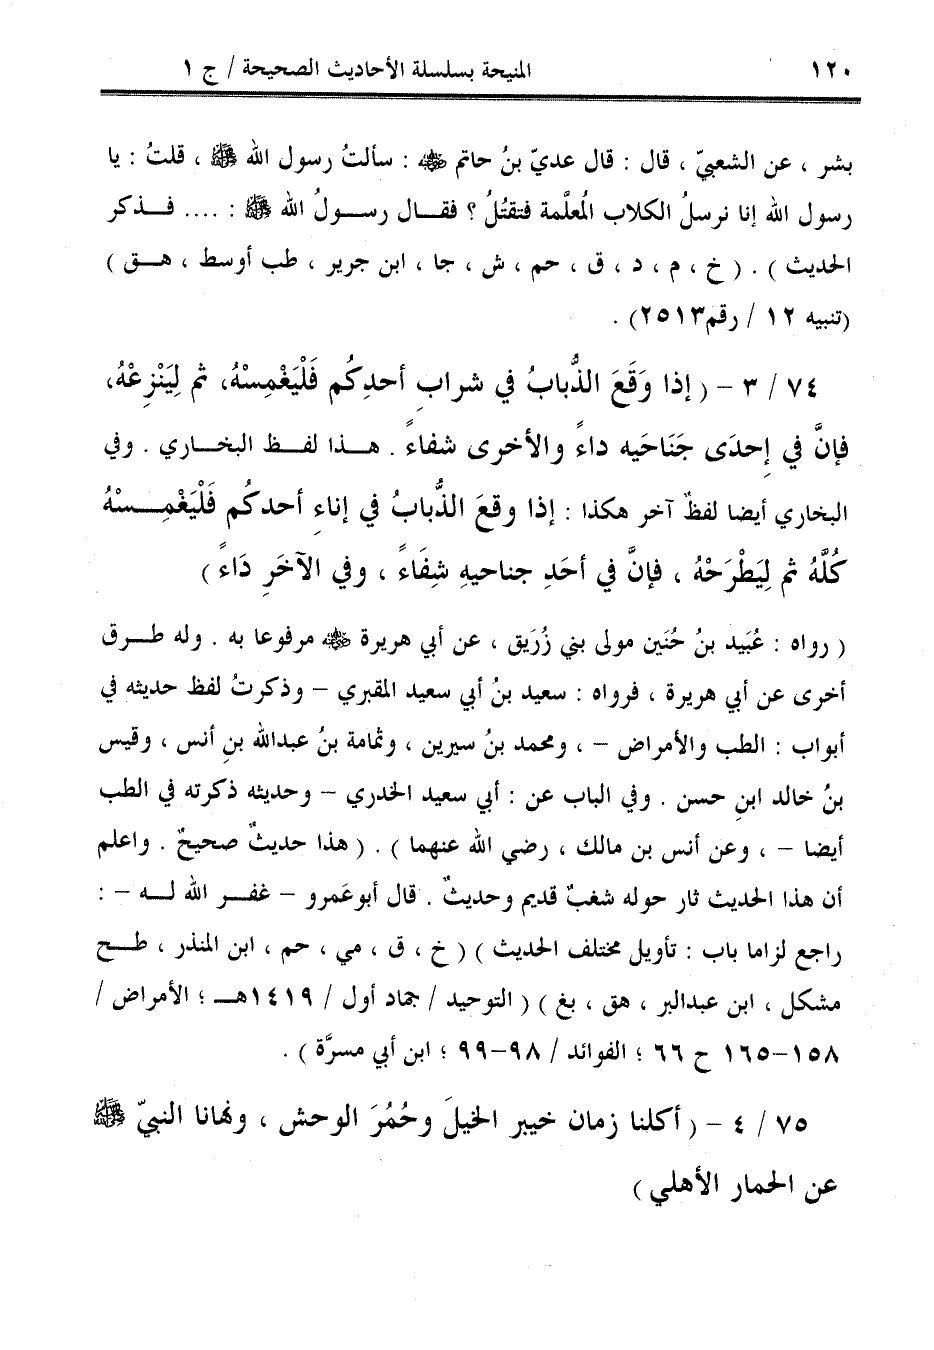 ١٢٠ المنيحة بسلسلة الأحاديث الصحيحة / ج ١
بشر ، عن الشعبيّ ، قال : قال عديّ بنُ حاتم ﵁ : سألتُ رسول الله ﷺ ، قلتُ : يا
رسول الله إنا نرسلُ الكلاب المُعلَّمة فتقتُلُ ؟ فقال رسولُ الله ﷺ : .... فذكر
الحديث ) . ( خ ، م ، د ، ق ، حم ، ش ، جا ، ابن جرير ، طب أوسط ، هق )
(تنبيه ١٢ / رقم٢٥١٣) .
٧٤ / ٣ – ( إذا وَقَعَ الذُّبابُ في شرابِ أحدِكُم فَلْيَغْمِسْهُ، ثم لِيَنْزِعْهُ،
فإنَّ في إِحدَى جَنَاحَيه داءً والأخرى شفاءً . هذا لفظ البخاري . وفي
البخاري أيضا لفظٌ آخر هكذا : إذا وقعَ الذُّبابُ في إناءِ أحدكُم فَلْيَغْمِسْهُ
كُلَّهُ ثم لِيَطْرَحْهُ ، فإنَّ في أحَدِ جناحيهِ شِفَاءً ، وفي الآخَرِ دَاءً )
( رواه : عُبَيد بنُ حُنَين مولى بني زُرَيق ، عن أبي هريرة ﵁ مرفوعا به . وله طرق
أخرى عن أبي هريرة ، فرواه : سعيد بنُ أبي سعيد المقبري – وذكرتُ لفظ حديثه في
أبواب : الطب والأمراض – ، ومحمد بنُ سيرين ، وثمامة بنُ عبدالله بنِ أنس ، وقيس
بنُ خالد ابنِ حسن . وفي الباب عن : أبي سعيد الخدري – وحديثه ذكرته في الطب
أيضا – ، وعن أنس بن مالك ، رضي الله عنهما ) . ( هذا حديثٌ صحيحٌ . واعلم
أن هذا الحديث ثار حوله شغبٌ قديم وحديثٌ . قال أبوعَمرو – غفر الله له – :
راجع لزاما باب : تأويل مختلف الحديث ) ( خ ، ق ، مي ، حم ، ابن المنذر ، طح
مشكل ، ابن عبدالبر ، هق ، بغ ) ( التوحيد / جماد أول / ١٤١٩هـ ؛ الأمراض /
١٥٨–١٦٥ ح ٦٦ ؛ الفوائد / ٩٨–٩٩ ؛ ابن أبي مسرَّة ) .
٧٥ / ٤ – ( أكلنا زمان خيبر الخيلَ وحُمُرَ الوحش ، ونهانا النبيّ ﷺ
عن الحمار الأهلي )